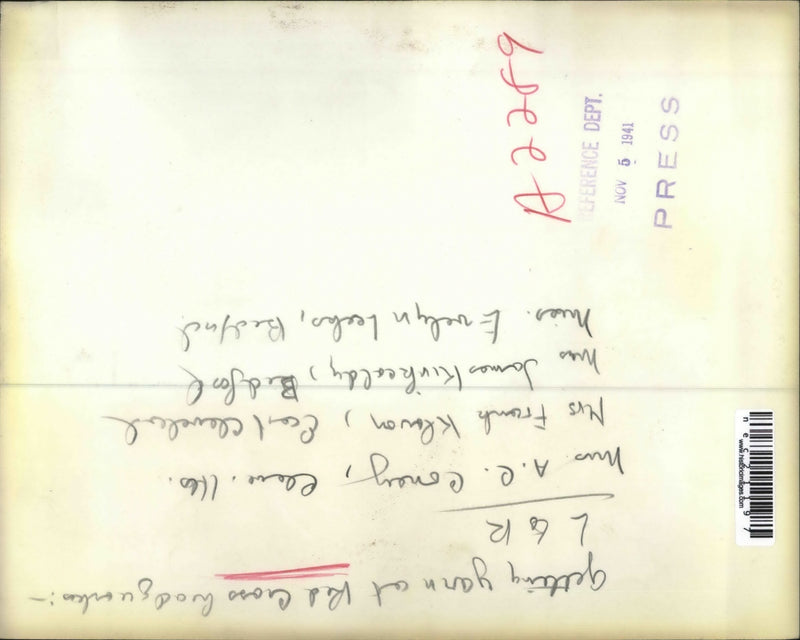 Getting yarn at Red Cross headquarters:-
L to R
Mrs. A. C. Coney, Cleve. Hts.
Mrs Frank Klavon, East Cleveland
Mrs James Kirkcaldy, Bedford
Miss. Evelyn Leeks, Bedford
A-2289
REFERENCE DEPT.
NOV 5 1941
PRESS
www.historicimages.com